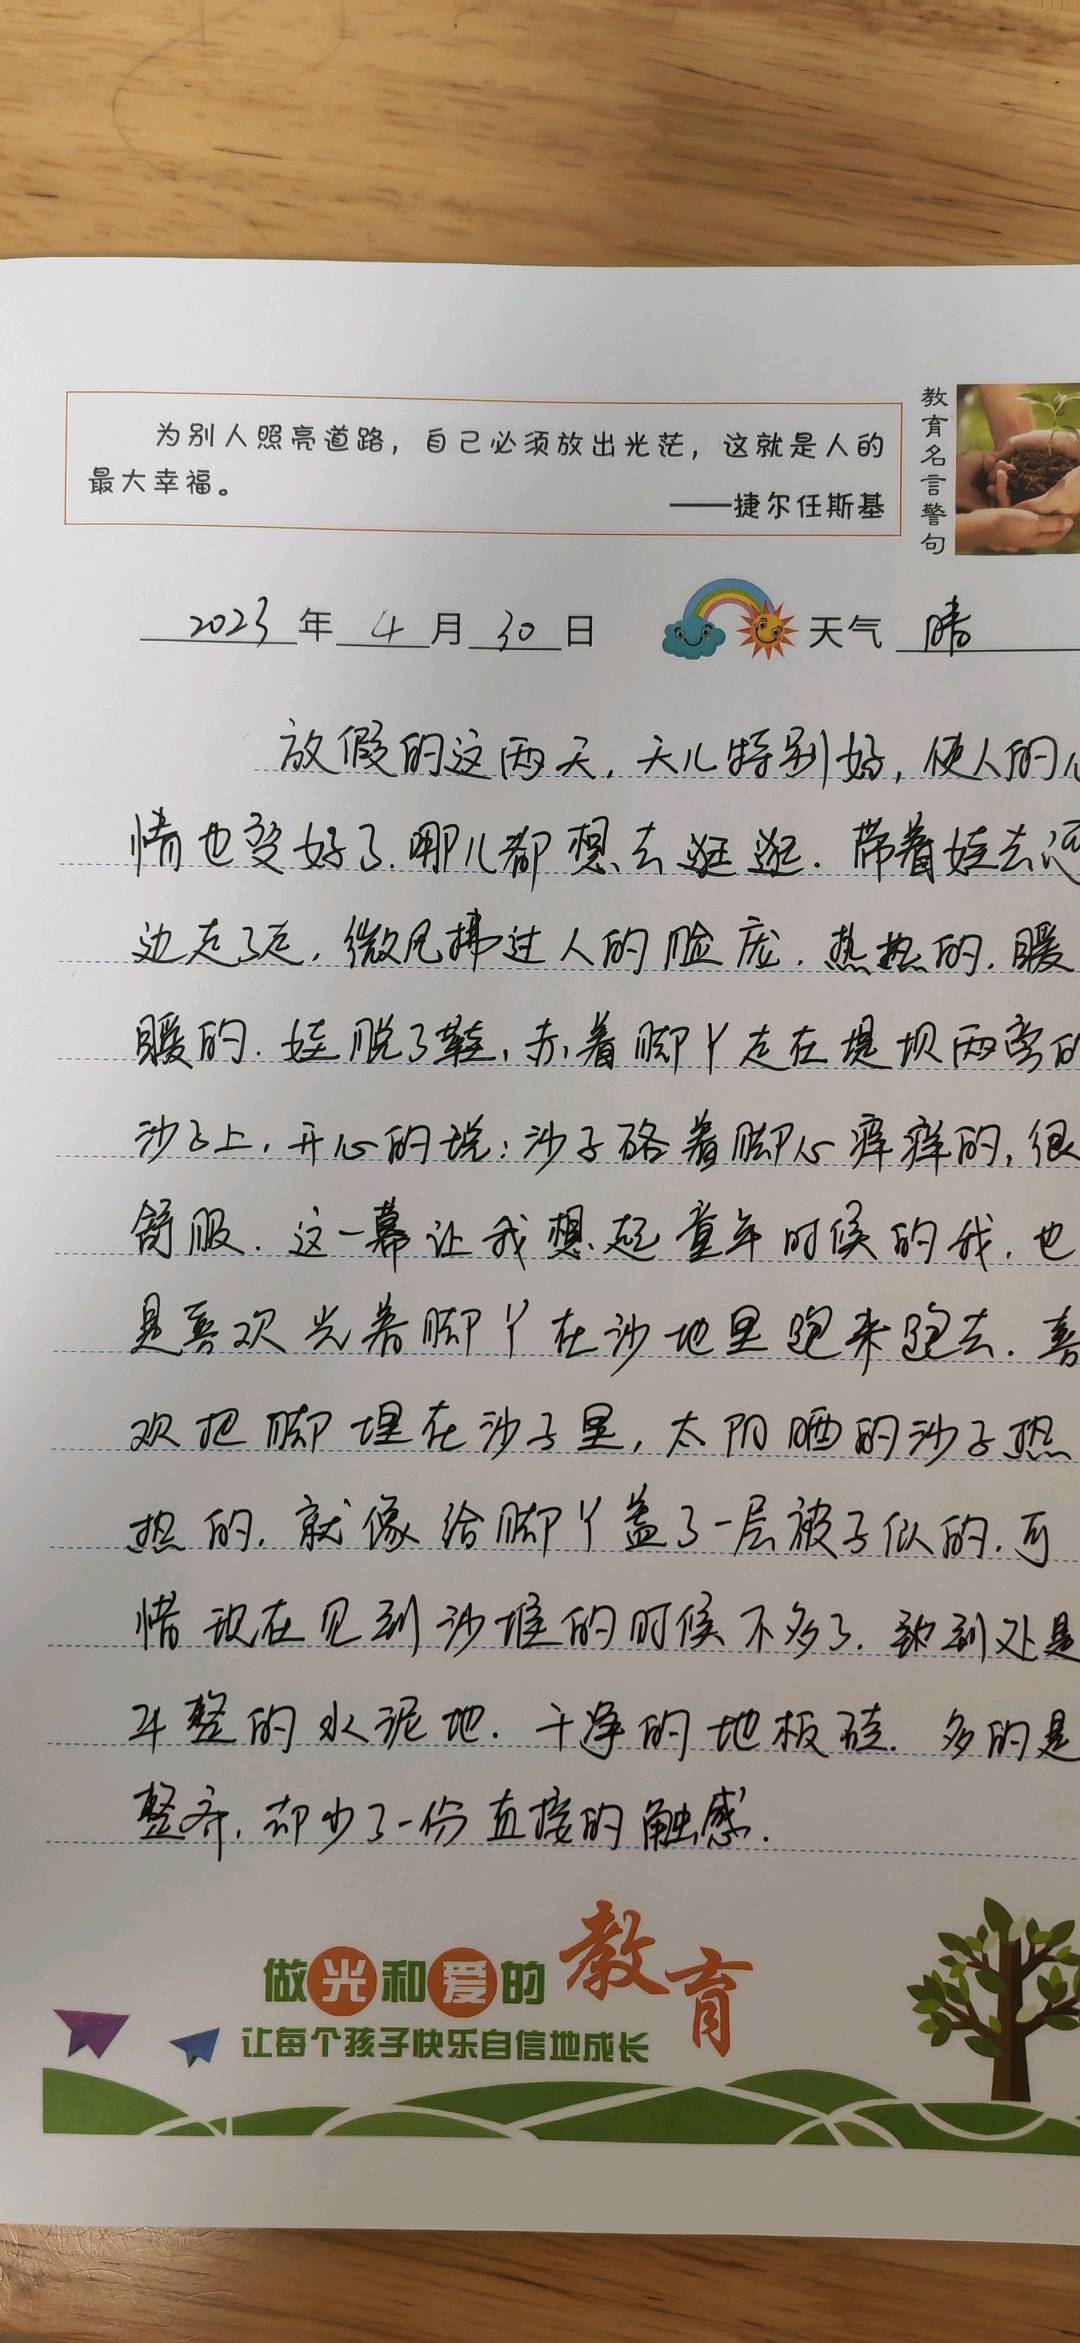 为别人照亮道路，自己必须放出光茫，这就是人的
最大幸福。
——捷尔任斯基
教育名言警句
2023年 4月 30日 天气 晴
放假的这两天，天儿特别好，使人的心
情也变好了.哪儿都想去逛逛.带着娃去河
边走了走，微风拂过人的脸庞.热热的.暖
暖的.娃脱了鞋、赤着脚丫走在堤坝两旁的
沙子上，开心的说：沙子硌着脚心痒痒的，很
舒服.这一幕让我想起童年时候的我.也
是喜欢光着脚丫在沙地里跑来跑去.喜
欢把脚埋在沙子里，太阳晒的沙子热
热的，就像给脚丫盖了一层被子似的.可
惜现在见到沙堆的时候不多了.到处是
平整的水泥地.干净的地板砖.多的是
整齐，却少了一份直接的触感.
做光和爱的教育
让每个孩子快乐自信地成长